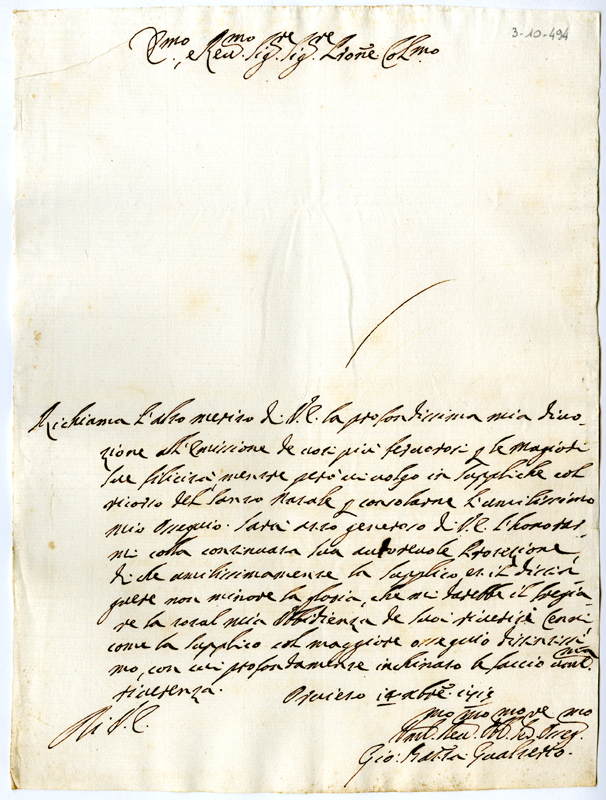 3-10-494
E.mo, e Reu.mo Sig.re Sig.re P̃rone Col.mo
Richiama l'alto merito di V.E. la profondissima mia diuo-
zione all'emissione de uoti più feruorosi p le maggiori
sue felicità mentre però mi uolgo in suppliche col
ricorso del Santo Natale p consolarne l'umilissimo
mio ossequio. Sarà atto generoso di V.E. l'honorar-
mi colla continuata sua autoreuole Protezione,
di che umilissimamente la supplico, et il distin-
guere non minore la gloria, che mi darebbe il fregia-
re la total mia Obbidienza de suoi riueriti Cenni
come la supplico col maggiore ossequio distintissi-
mo, con cui profondamente inchinato le faccio uml.ma
riuerenza. Oruieto
Di V.E.
Uml.mo Deu.mo Obl.mo Se.re Osseq.mo
Gio: Batta Gualterio.